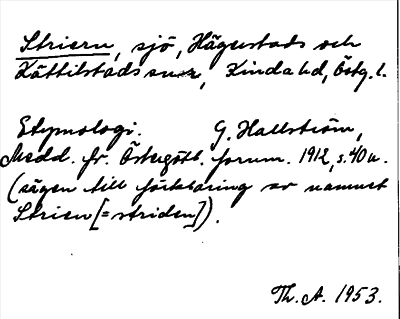 Striern, sjö, Hägerstads och
Kättilstads snr, Kinda hd, Östg. l.
Etymologi. G. Hallström,
Medd. fr. Östergötl. fornm. 1912, s. 40 u.
(sägen till förklaring av namnet
Strien [= striden]).
Th. A. 1953.